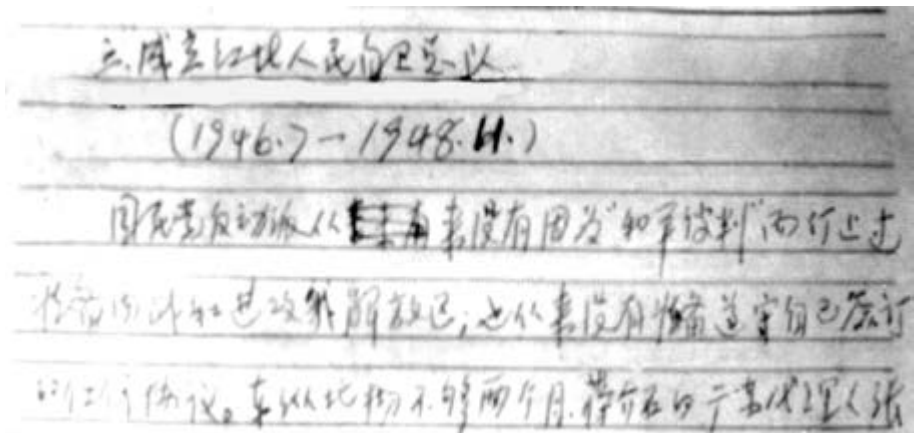 立、成立江北人民自卫总队
(1946.7—1948.11.)
国民党反动派从来没有因为"和平谈判"而停止过
准备内战和进攻我解放区;也从来没有准备遵守自己签订
的任何协议。东纵北撤不够两个月,蒋介石的广东代理人张